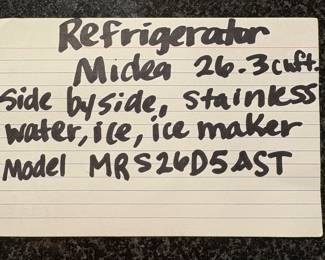 Refrigerator
Midea 26.3 cuft.
Side by side, stainless
water, ice, ice maker
Model MRS26D5AST